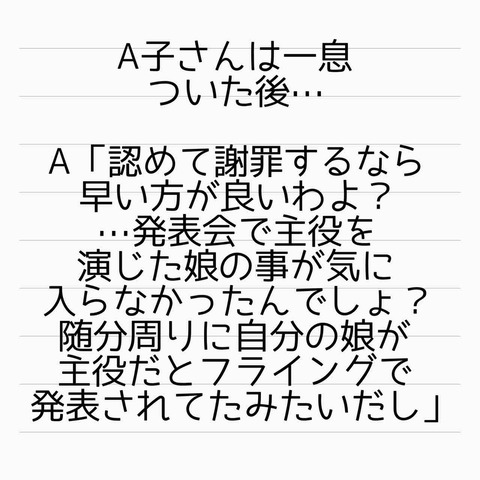 A子さんは一息
ついた後…
A「認めて謝罪するなら
早い方が良いわよ？
…発表会で主役を
演じた娘の事が気に
入らなかったんでしょ？
随分周りに自分の娘が
主役だとフライングで
発表されてたみたいだし」